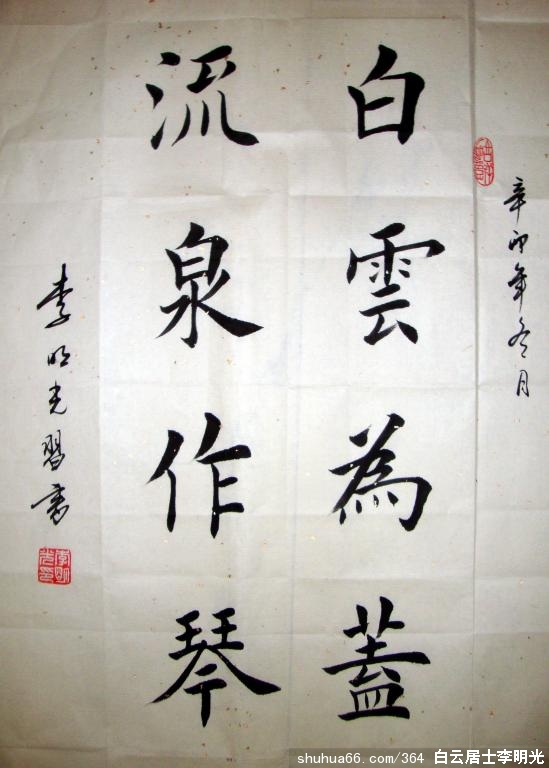 辛卯年冬月
白雲為蓋
流泉作琴
李明光習書
李明光印
shuhua66.com/364 白云居士李明光